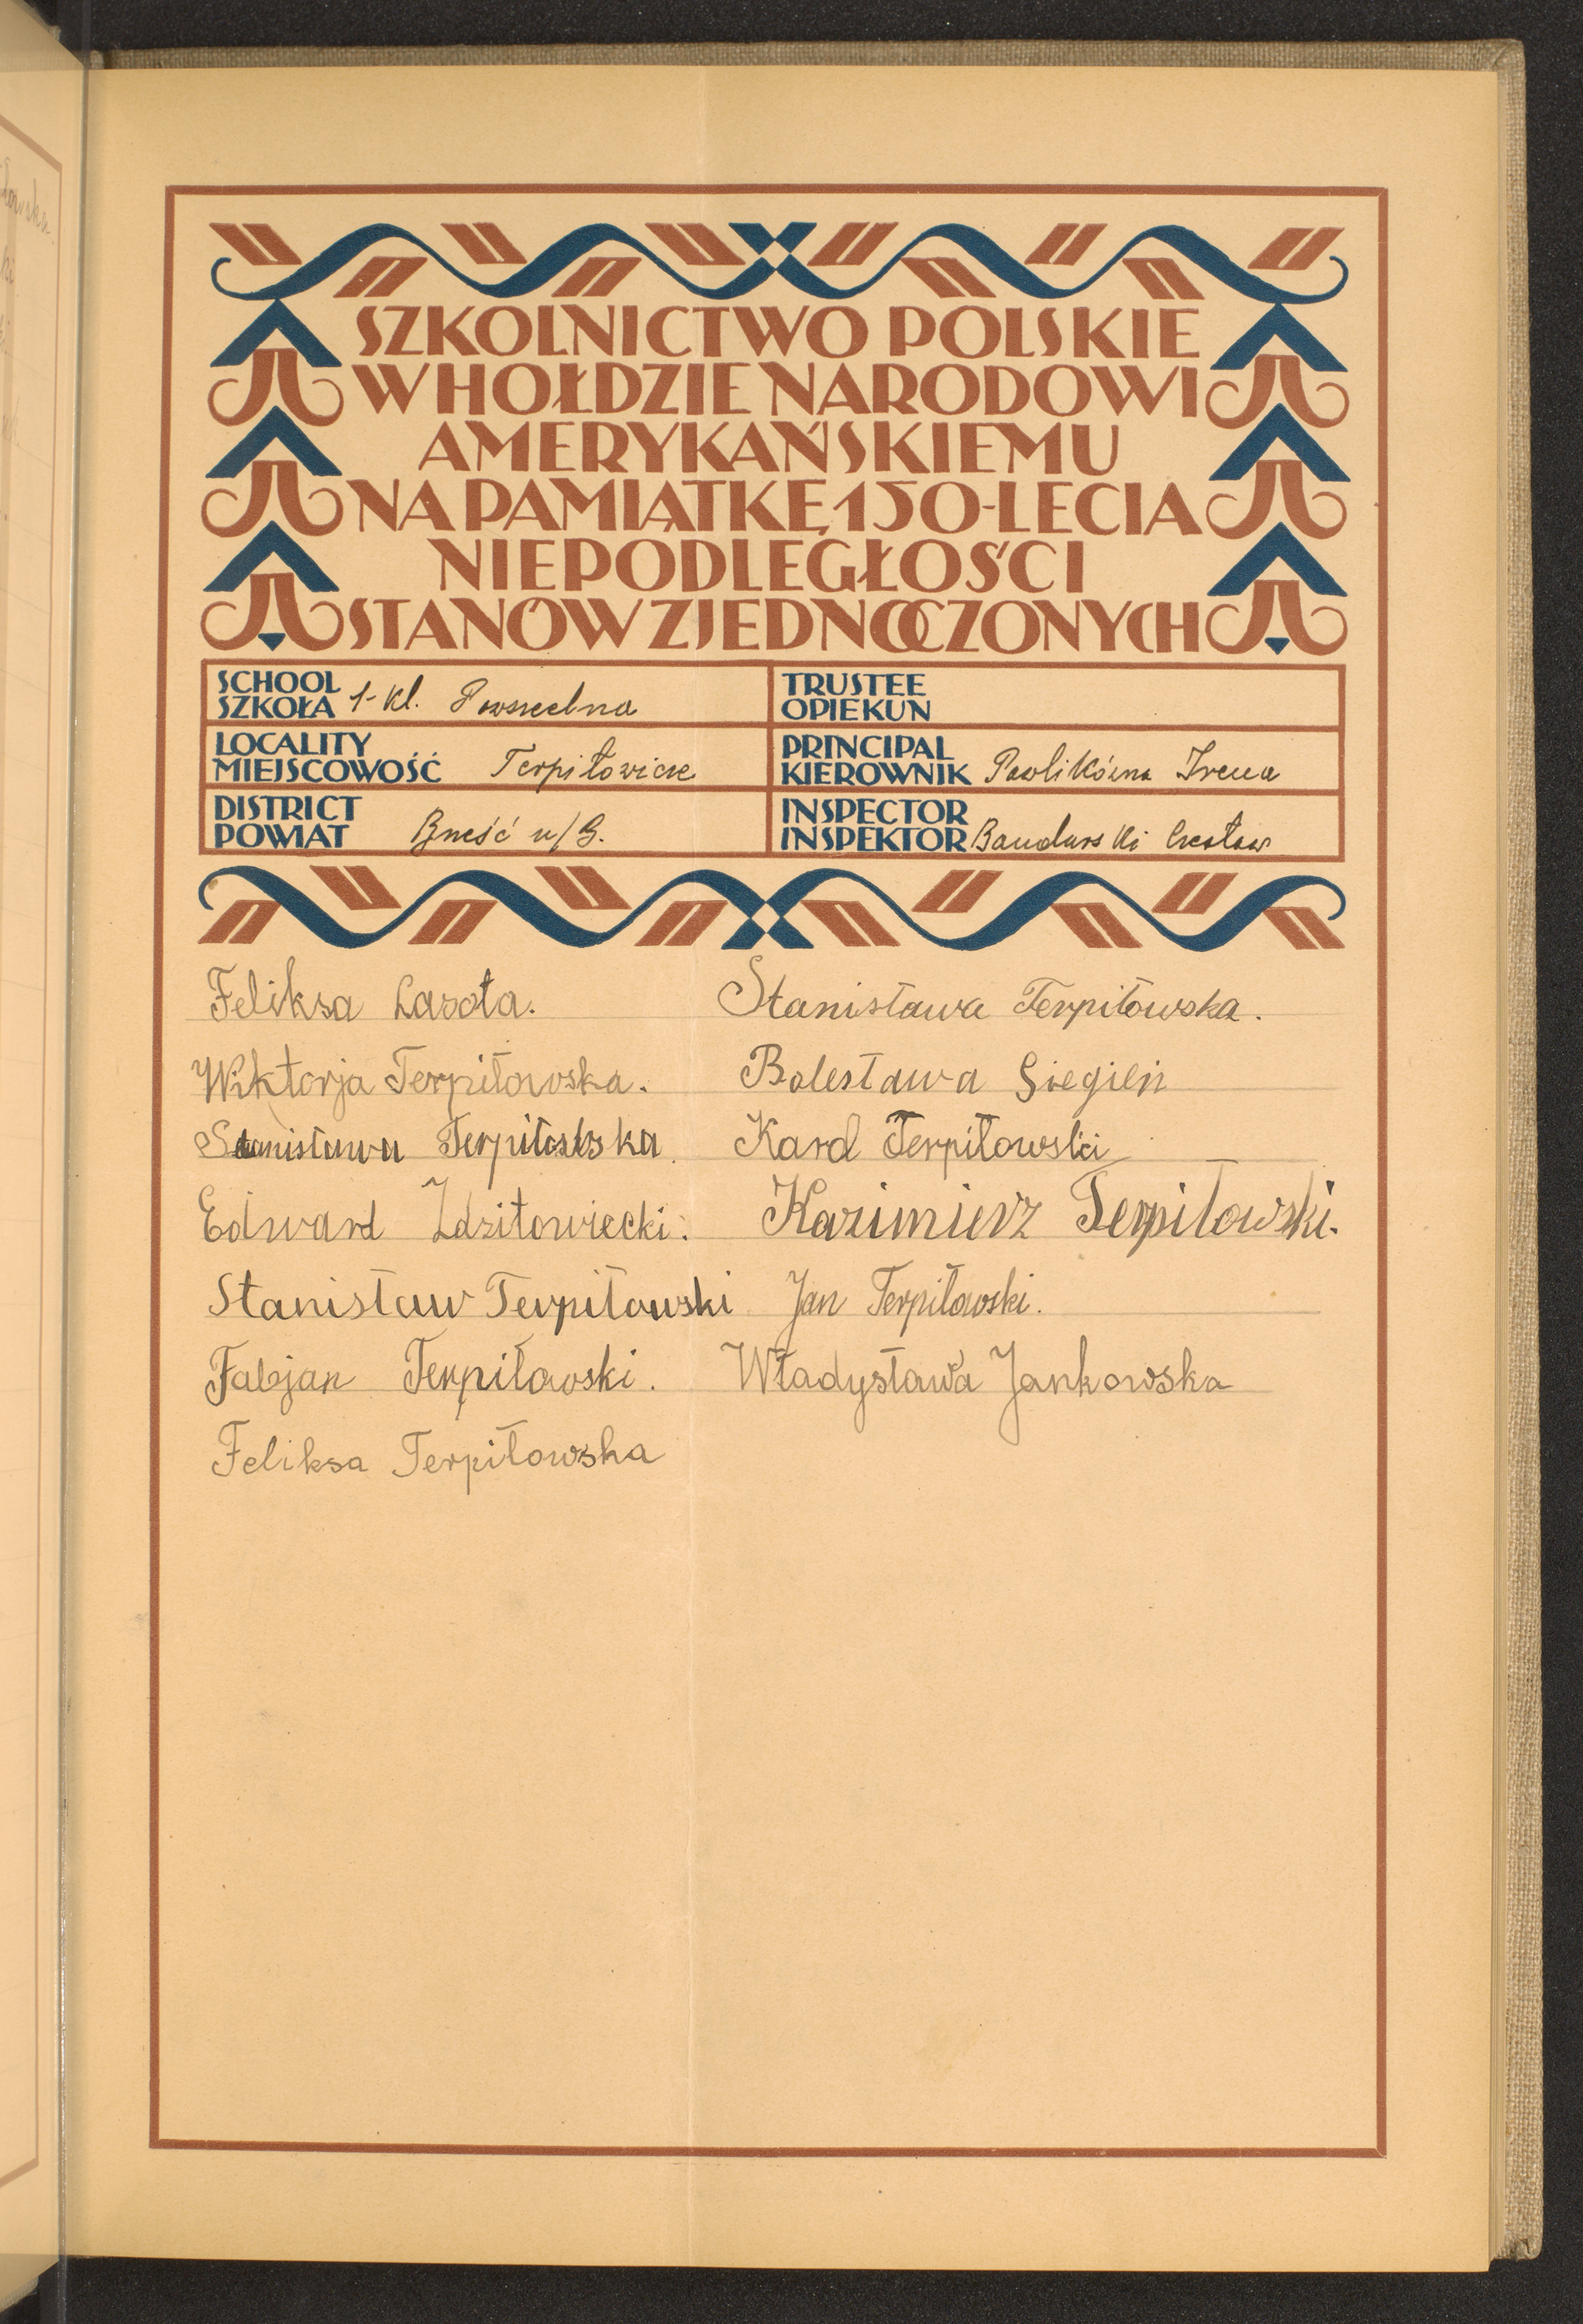 SZKOLNICTWO POLSKIE
W HOŁDZIE NARODOWI
AMERYKAŃSKIEMU
NA PAMIĄTKĘ 150-LECIA
NIEPODLEGŁOŚCI
STANÓW ZJEDNOCZONYCH
SCHOOL
SZKOŁA 1-kl. Powszechna
TRUSTEE
OPIEKUN
LOCALITY
MIEJSCOWOŚĆ Terpiłowicze
PRINCIPAL
KIEROWNIK Pawlikówna Irena
DISTRICT
POWIAT Brześć n/B.
INSPECTOR
INSPEKTOR Bandurski Czesław
Feliksa Lasota.
Wiktorja Terpiłowska.
Stanisława Terpiłowska.
Edward Zdzitowiecki.
Stanisław Terpiłowski
Fabjan Terpiłowski.
Feliksa Terpiłowska
Stanisława Terpiłowska.
Bolesława Siegień
Karol Terpiłowski
Kazimierz Terpiłowski.
Jan Terpiłowski.
Władysława Jankowska